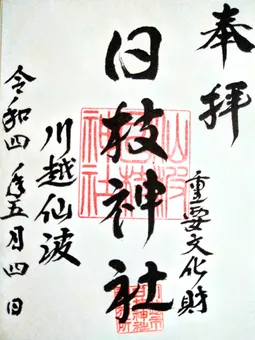 奉拝
重要文化財
日枝神社
川越仙波
令和四年五月四日
仙波日枝神社